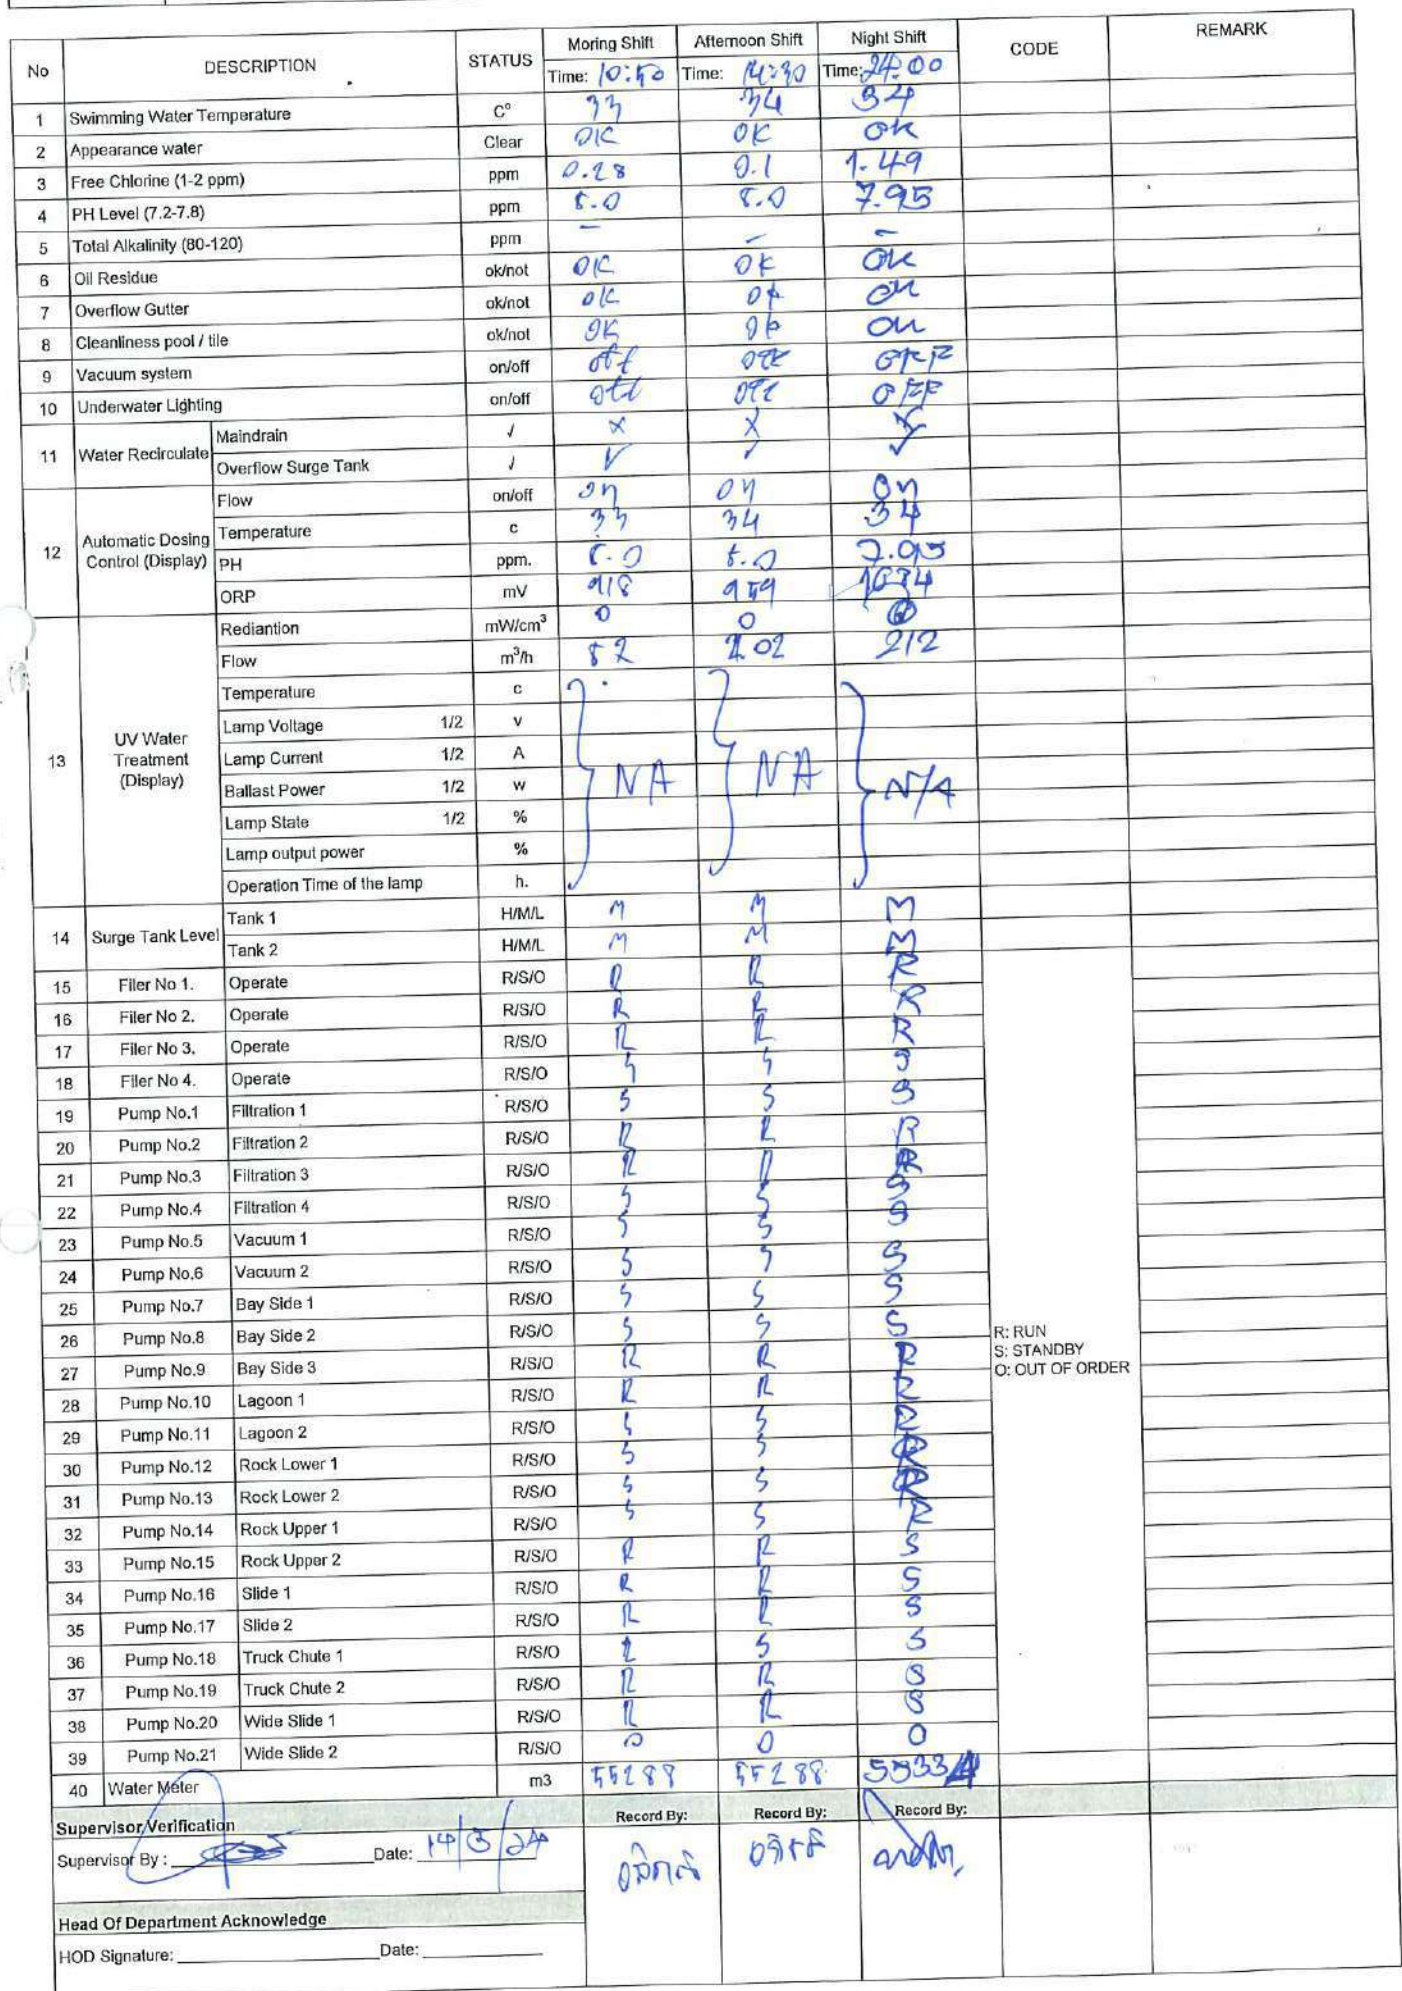 No DESCRIPTION STATUS Moring Shift Afternoon Shift Night Shift CODE REMARK
Time: 10:50 Time: 14:30 Time: 24.00
1 Swimming Water Temperature C° 33 34 34
2 Appearance water Clear OK OK OK
3 Free Chlorine (1-2 ppm) ppm 0.28 0.1 1.49
4 PH Level (7.2-7.8) ppm 8.0 8.0 7.95
5 Total Alkalinity (80-120) ppm - - -
6 Oil Residue ok/not OK OK OK
7 Overflow Gutter ok/not OK OK OK
8 Cleanliness pool / tile ok/not OK OK OK
9 Vacuum system on/off off off OFF
10 Underwater Lighting on/off off off OFF
11 Water Recirculate Maindrain √ X X
Overflow Surge Tank √ √ √ √
12 Automatic Dosing Control (Display) Flow on/off on on on
Temperature c 33 34 34
PH ppm. 8.0 8.0 7.95
ORP mV 918 959 1034
13 UV Water Treatment (Display) Rediantion mW/cm³ 0 0 0
Flow m³/h 82 202 212
Temperature c
Lamp Voltage 1/2 v
Lamp Current 1/2 A
Ballast Power 1/2 w NA NA N/A
Lamp State 1/2 %
Lamp output power %
Operation Time of the lamp h.
14 Surge Tank Level Tank 1 H/M/L M M M
Tank 2 H/M/L M M M
15 Filer No 1. Operate R/S/O R R R
16 Filer No 2. Operate R/S/O R R R
17 Filer No 3. Operate R/S/O R R R
18 Filer No 4. Operate R/S/O S S S
19 Pump No.1 Filtration 1 R/S/O S S S
20 Pump No.2 Filtration 2 R/S/O R R R
21 Pump No.3 Filtration 3 R/S/O R R R
22 Pump No.4 Filtration 4 R/S/O S S S
23 Pump No.5 Vacuum 1 R/S/O S S S
24 Pump No.6 Vacuum 2 R/S/O S S S
25 Pump No.7 Bay Side 1 R/S/O S S S
26 Pump No.8 Bay Side 2 R/S/O S S S
27 Pump No.9 Bay Side 3 R/S/O R R R
28 Pump No.10 Lagoon 1 R/S/O R R R
29 Pump No.11 Lagoon 2 R/S/O S S R
30 Pump No.12 Rock Lower 1 R/S/O S S R
31 Pump No.13 Rock Lower 2 R/S/O S S R
32 Pump No.14 Rock Upper 1 R/S/O S S R
33 Pump No.15 Rock Upper 2 R/S/O R R S
34 Pump No.16 Slide 1 R/S/O R R S
35 Pump No.17 Slide 2 R/S/O R R S
36 Pump No.18 Truck Chute 1 R/S/O R S S
37 Pump No.19 Truck Chute 2 R/S/O R R S
38 Pump No.20 Wide Slide 1 R/S/O R R S
39 Pump No.21 Wide Slide 2 R/S/O O O O
R: RUN
S: STANDBY
O: OUT OF ORDER
40 Water Meter m3 55288 55288 55334
Supervisor Verification Record By: Record By: Record By:
Supervisor By : Date: 14/5/24
Head Of Department Acknowledge
HOD Signature: Date: